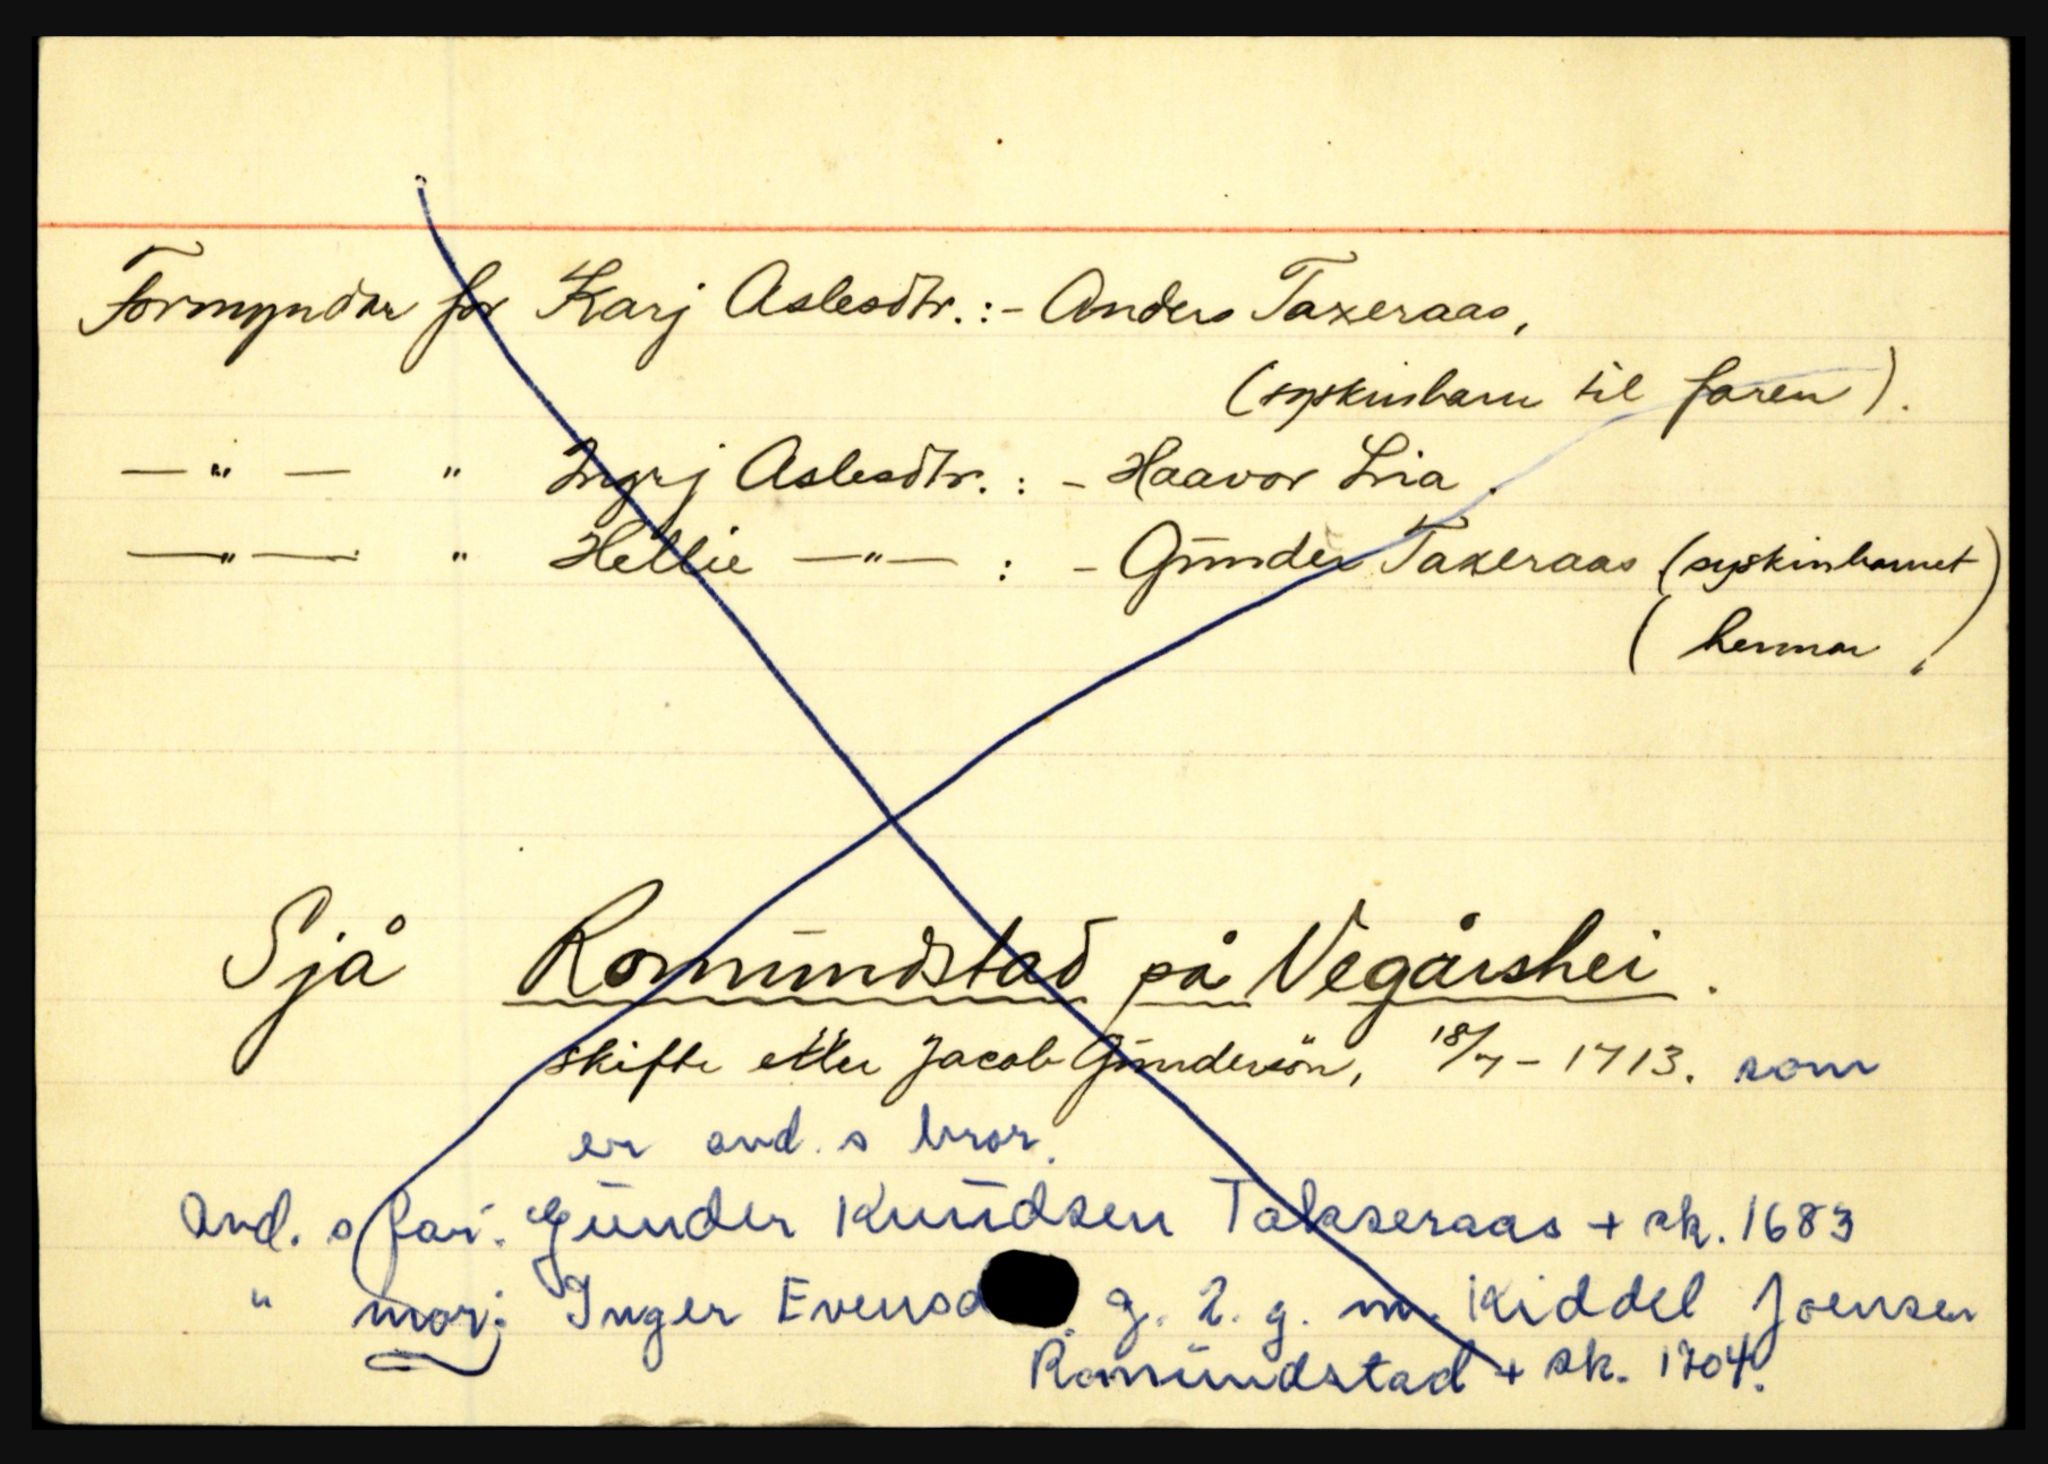 Formyndar for Karj Aslesdtr.:- Anders Taxeraas,
(syskinbarn til faren).
—"— " Ingrj Aslesdtr. : - Haavor Lia.
—"— " Hellie —"— : - Gunder Taxeraas (syskinbarnet)
( hennar )
Sjå Romundstad på Vegårshei.
skifte etter Jacob Gundersön, 18/7 - 1713. som
er avd. s bror.
avd. s far: Gunder Knudsen Takseraas + sk. 1683
" mor: Inger Evensd . g. 2. g. m. Kiddel Joensen
Romundstad + sk. 1704.